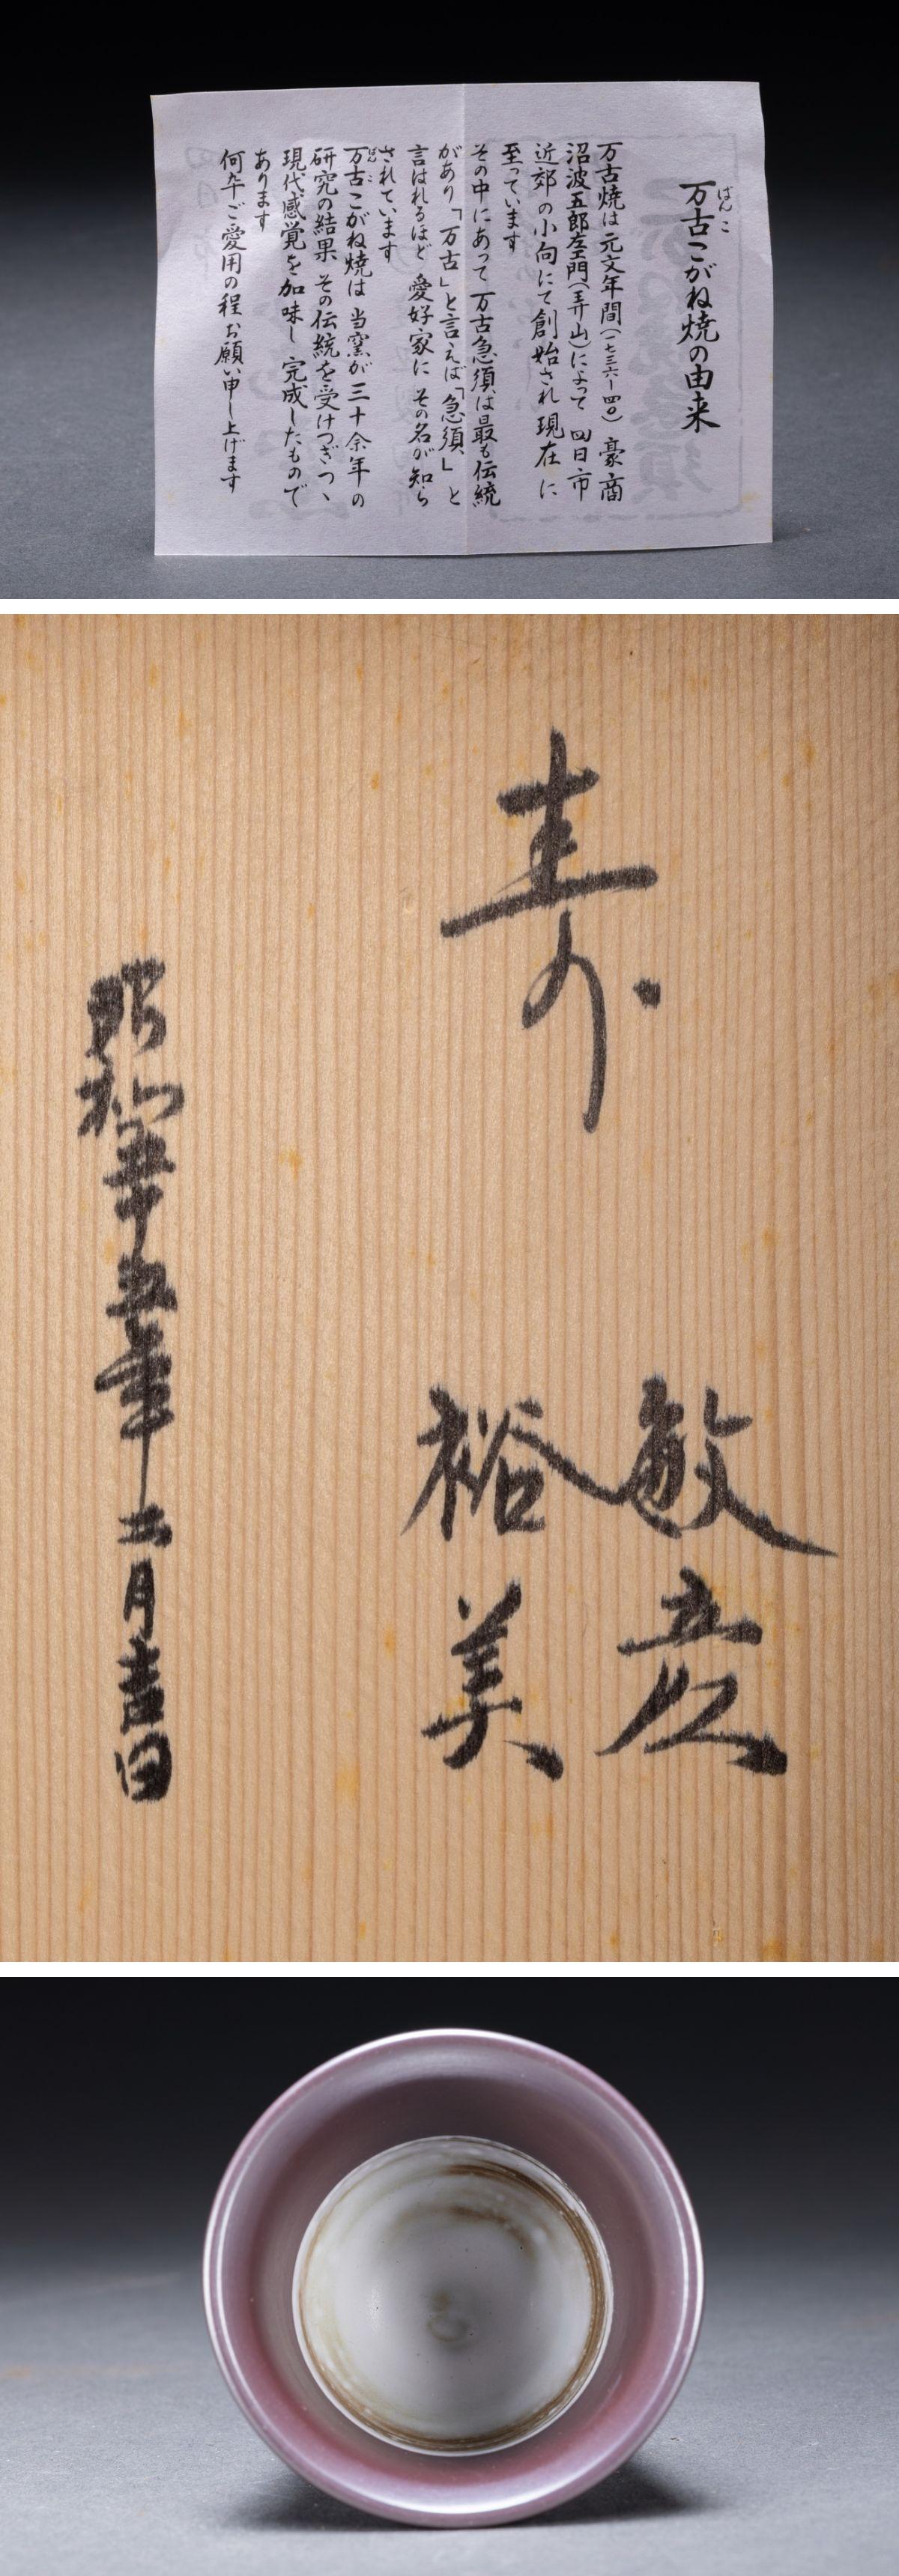 万古こがね焼の由来
ばんこ
万古焼は元文年間(一七三六―四〇) 豪商
沼波五郎左ヱ門(弄山)によって 四日市
近郊の小向にて創始され 現在に
至っています
その中にあって 万古急須は最も伝統
があり「万古」と言えば「急須」と
言はれるほど 愛好家に その名が知ら
されています
万古こがね焼は 当窯が三十余年の
ばんこ
研究の結果 その伝統を受けつぎつゝ
現代感覚を加味し 完成したもので
あります
何卒ご愛用の程お願い申し上げます
寿
敏彦
裕美
昭和五十五年 月吉日